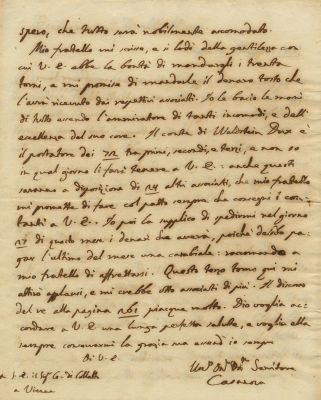 spero, che tutto sarà nobilmente accomodato.
Mio fratello mi scrisse, e si loda della gentilezza con
cui V. E. ebbe la bontà di mandargli i trenta
tomi, e mi promise di mandarle il denaro tosto che
l'avrà ricevuto dai rispettivi associati. Io le bacio le mani
di tutto essendo l'ammiratore di tanti incomodi, e dell'
eccellenza del suo core. Il conte di Waldstein Dux è
il portatore dei 72 tra primi, secondi, e terzi, e non so
in qual giorno li farà tenere a V. E.: anche questi
saranno a disposizione di altri associati, che mio fratello
mi promette di fare col patto sempre che consegni i con-
tanti a V. E. Io poi la supplico di spedirmi nel giorno
27 di questo mese i denari che averà, poiché debbo pa-
gar l'ultimo del mese una cambiale: raccomando a
mio fratello di affrettarsi. Questo terzo tomo qui mi
attirò applausi, e mi crebbe otto associati di più. Il discorso
del re alla pagina 261 piacque molto. Dio voglia ac-
cordare a V. E. una lunga perfetta salute, e voglia ella
sempre conservarmi la grazia sua ond'io sempre
Di V. E.
Servitore
Casanova
a S. E. il Sigr Co. di Collalto
a Vienna